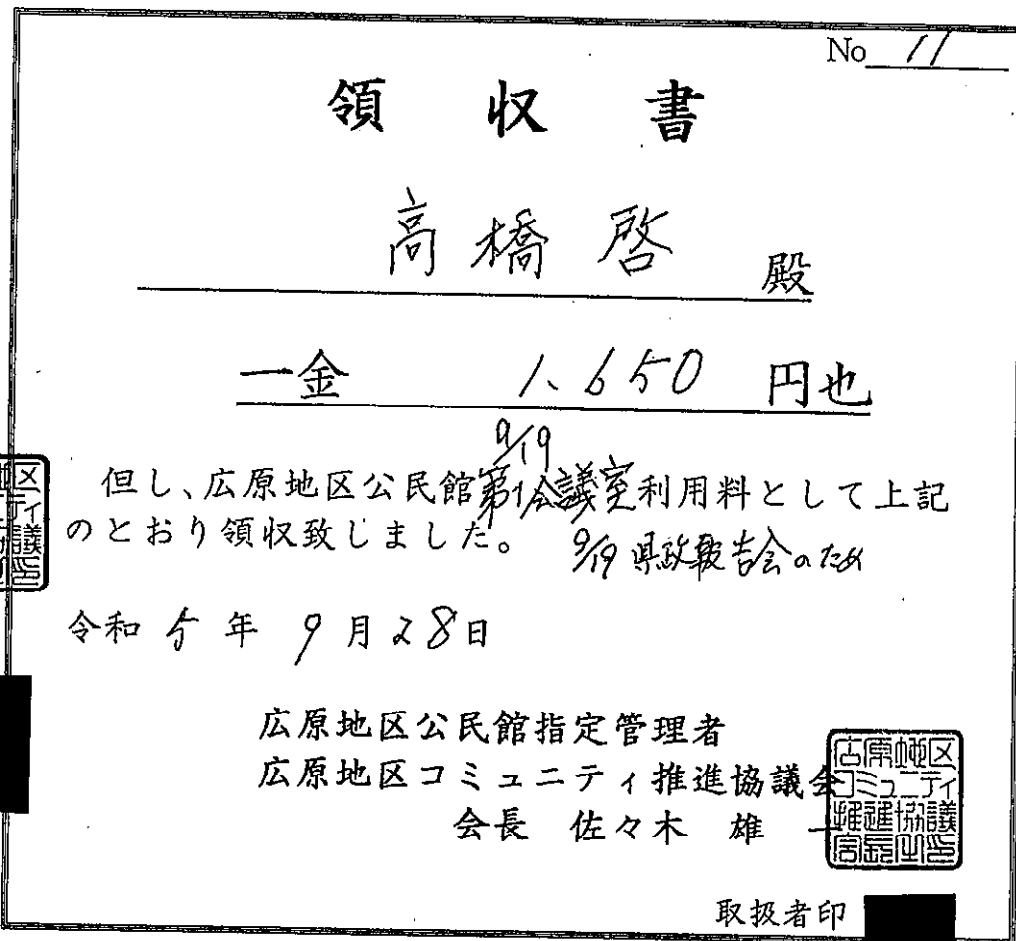 No 11
領 収 書
高橋 啓 殿
一金 1、650 円也
9/19
但し、広原地区公民館第1会議室利用料として上記
のとおり領収致しました。 9/19 県政報告会のため
令和 5 年 9 月 28 日
広原地区公民館指定管理者
広原地区コミュニティ推進協議会
会長 佐々木 雄 一
取扱者印